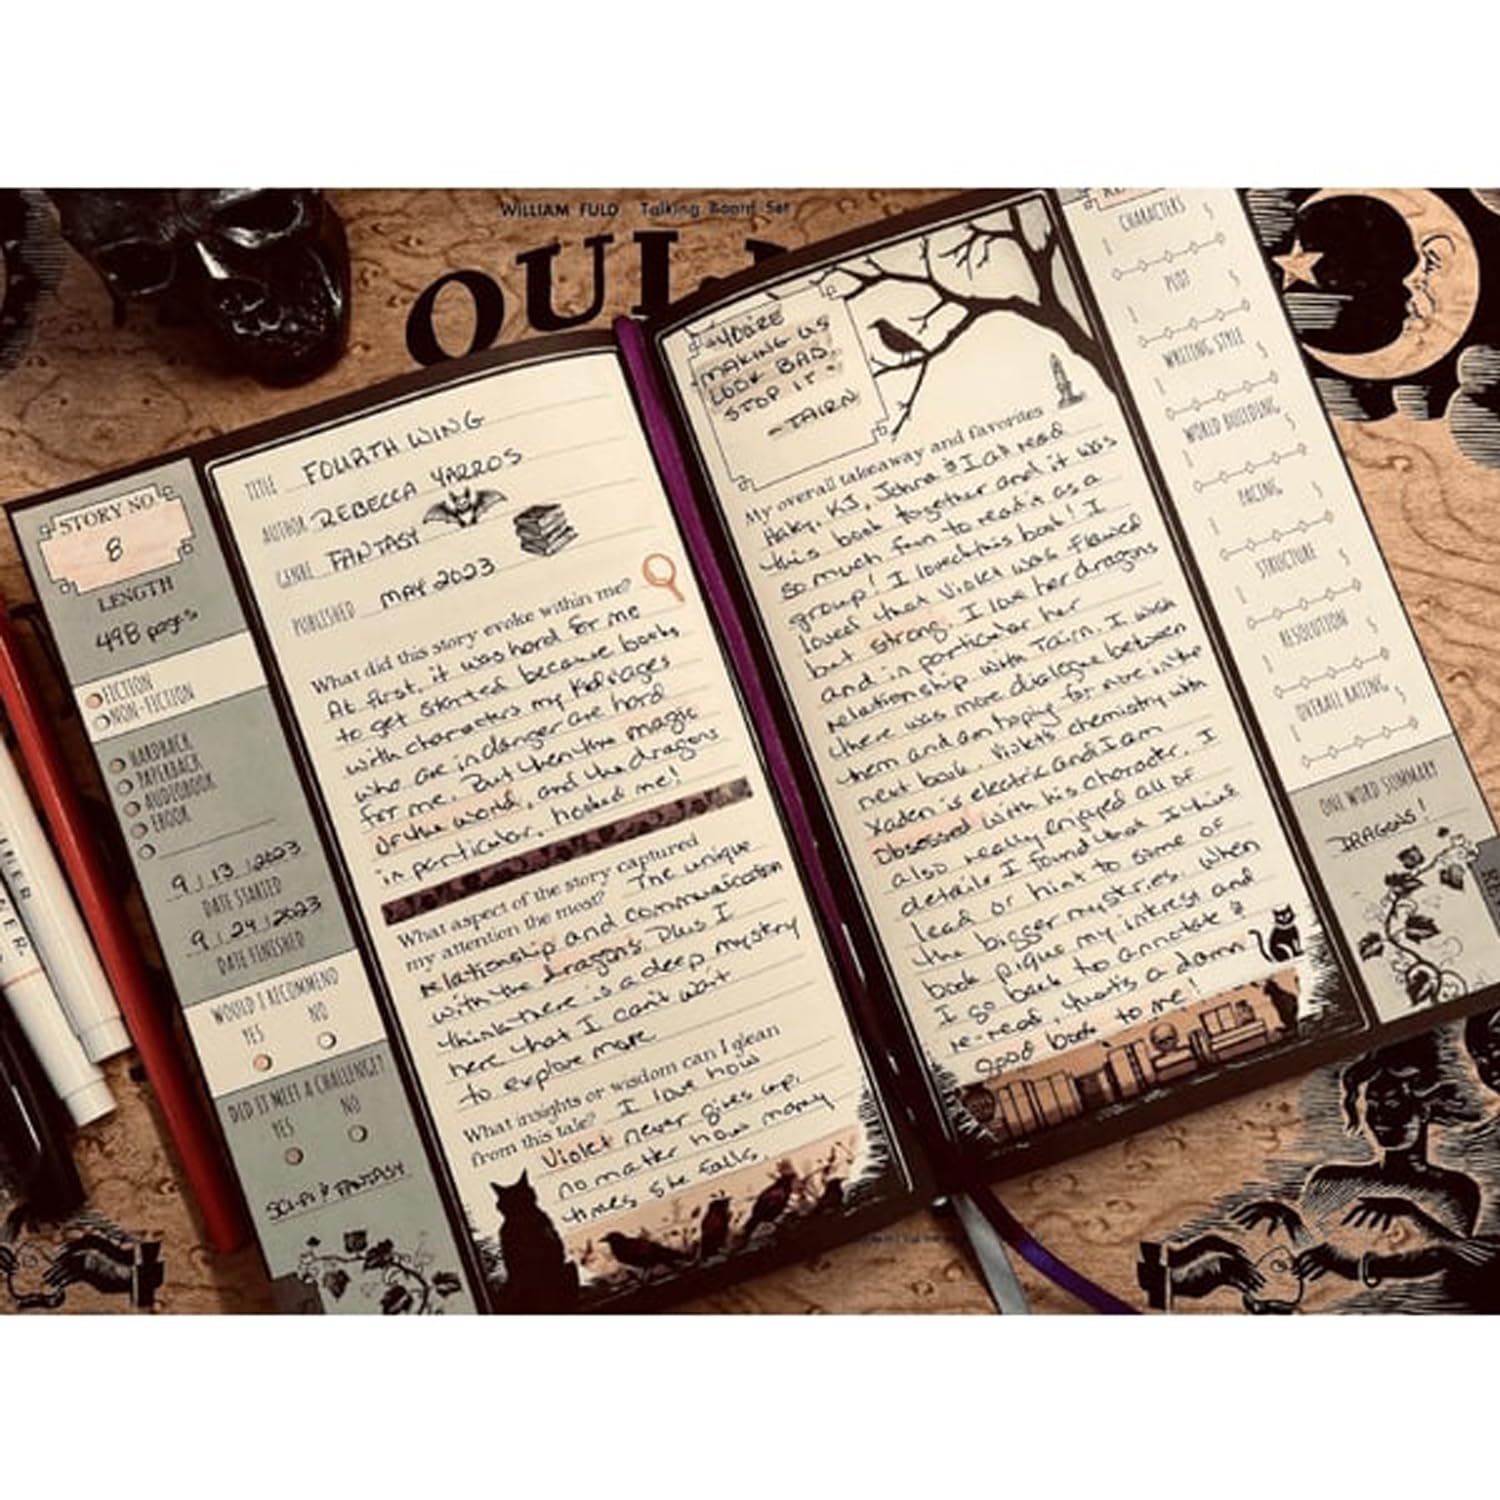 WILLIAM FULD Talking Board Set
OUIJ
STORY NO.
8
LENGTH
498 pages
FICTION
NON-FICTION
HARDBACK
PAPERBACK
AUDIOBOOK
EBOOK
9 / 13 / 2023
DATE STARTED
9 / 24 / 2023
DATE FINISHED
WOULD I RECOMMEND
YES NO
DID IT MEET A CHALLENGE?
YES NO
SCI-FI & FANTASY
TITLE FOURTH WING
AUTHOR REBECCA YARROS
GENRE FANTASY
PUBLISHED MAY 2023
What did this story evoke within me?
At first, it was hard for me
to get started because books
with characters my kids ages
who are in danger are hard
for me. But then the magic
of the world, and the dragons
in particular, hooked me!
What aspect of the story captured
my attention the most? The unique
relationship and communication
with the dragons. Plus I
think there is a deep mystery
here that I can't wait
to explore more.
What insights or wisdom can I glean
from this tale? I love how
Violet never gives up,
no matter how many
times she falls.
"YOU'RE
MAKING US
LOOK BAD.
STOP IT"
-TAIRN
My overall takeaway and favorites
KJ, & I all read
this book together and it was
so much fun to read it as a
group! I loved this book! I
loved that Violet was flawed
but strong. I love her dragons
and in particular her
relationship with Tairn. I wish
there was more dialogue between
them and am hoping for more in the
next book. Violet's chemistry with
Xaden is electric and I am
obsessed with his character. I
also really enjoyed all of
details I found that I think
lead or hint to some of
the bigger mysteries. When
book pique my interest and
I go back to annotate &
re-read, that's a damn
good book to me!
CHARACTERS
1 5
PLOT
1 5
WRITING STYLE
1 5
WORLD BUILDING
1 5
PACING
1 5
STRUCTURE
1 5
RESOLUTION
1 5
OVERALL RATING
1 5
ONE WORD SUMMARY
DRAGONS!